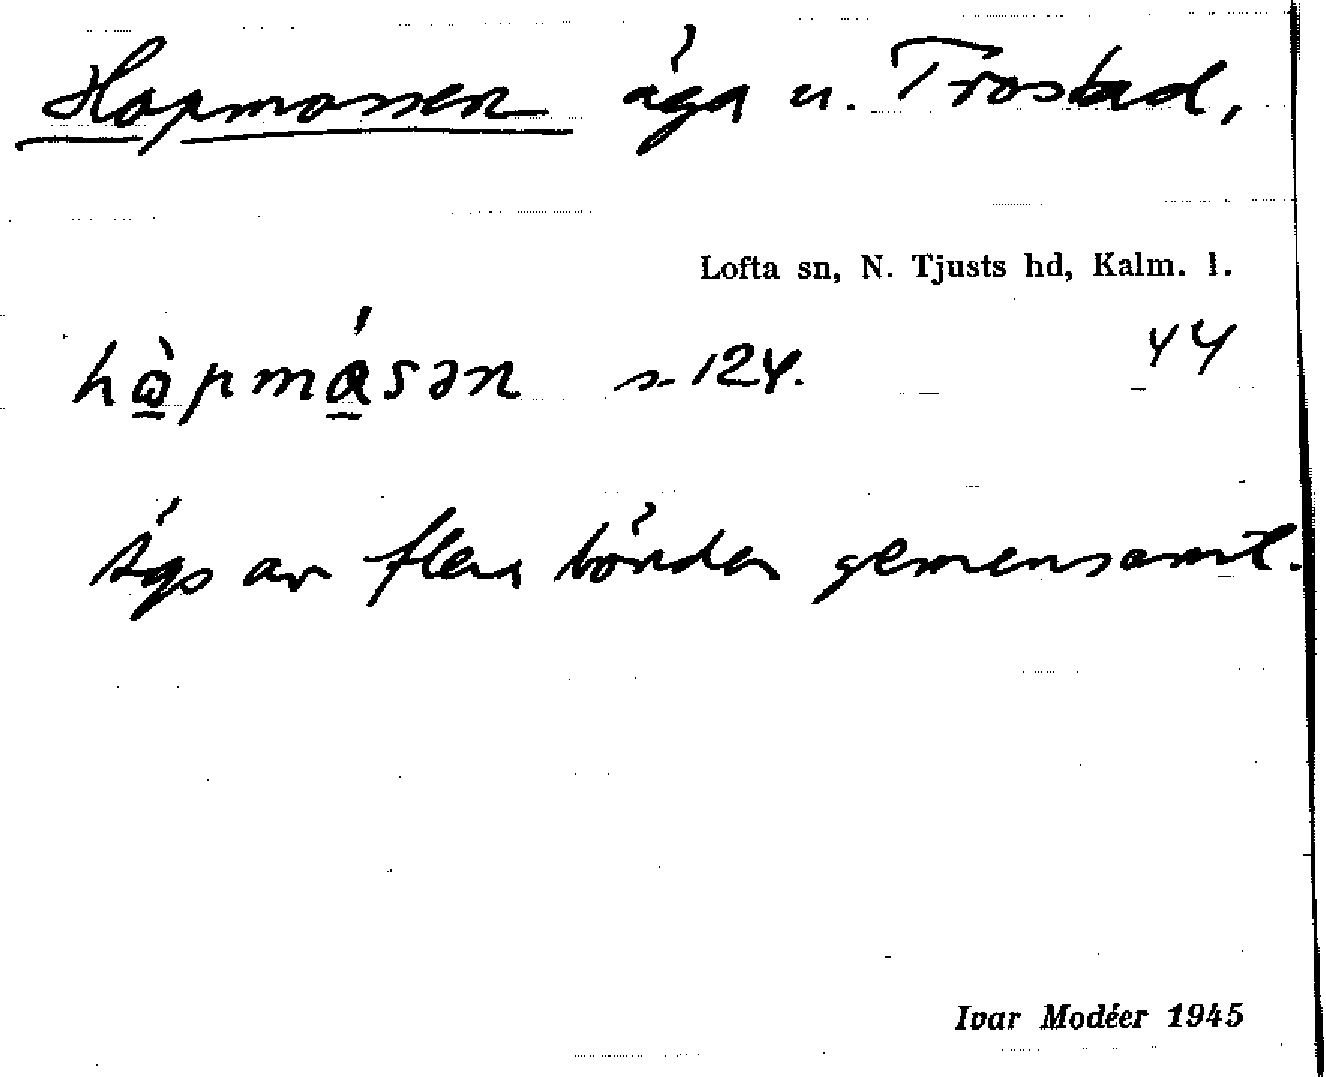 Hopmossen äga u. Trostad,
Lofta sn, N. Tjusts hd, Kalm. l.
hòpmásən s. 124. 44
Ägs av flera bönder gemensamt.
Ivar Modéer 1945